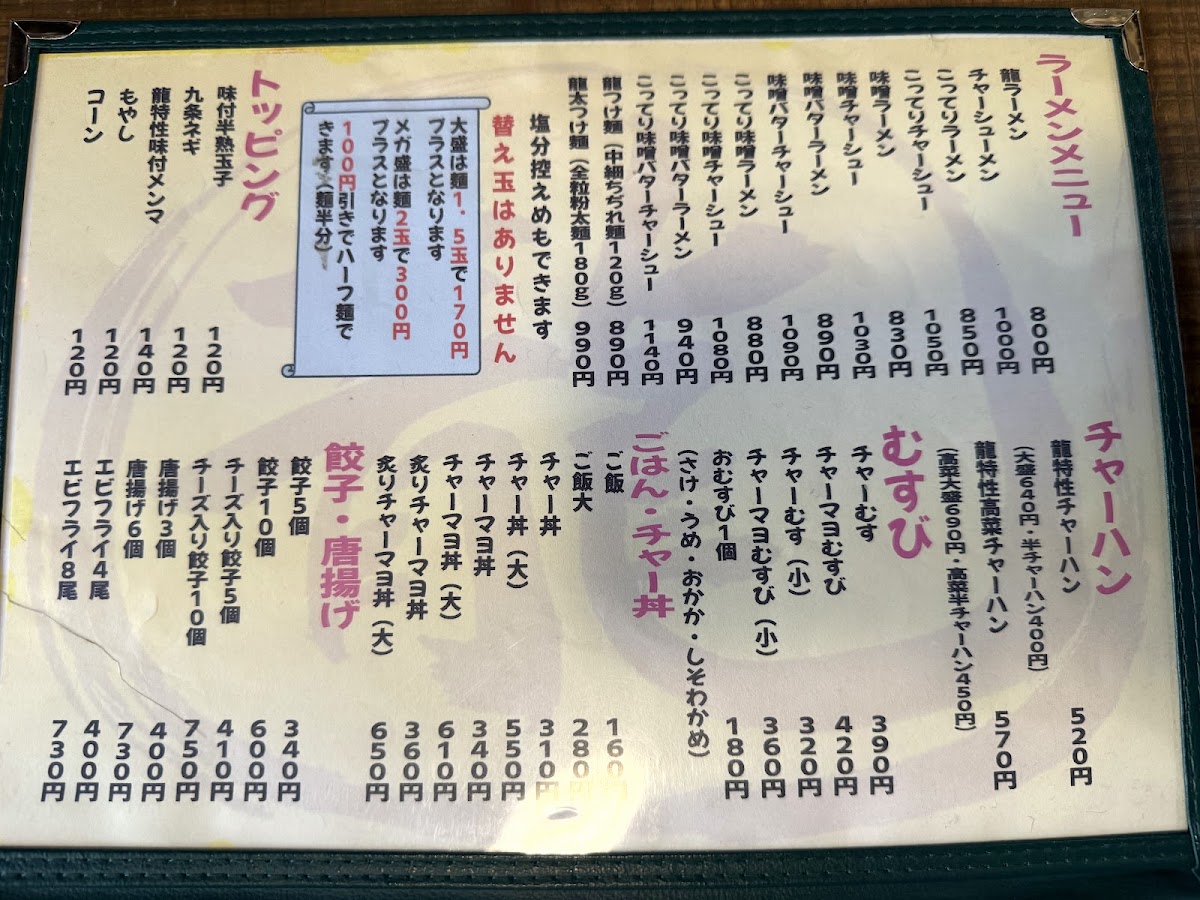 ラーメンメニュー
龍ラーメン 800円
チャーシューメン 1000円
こってりラーメン 850円
こってりチャーシュー 1050円
味噌ラーメン 830円
味噌チャーシュー 1030円
味噌バターラーメン 890円
味噌バターチャーシュー 1090円
こってり味噌ラーメン 880円
こってり味噌チャーシュー 1080円
こってり味噌バターラーメン 940円
こってり味噌バターチャーシュー 1140円
龍つけ麺(中細ちぢれ麺120g) 890円
龍太つけ麺(全粒粉太麺180g) 990円
塩分控えめもできます
替え玉はありません
大盛は麺1.5玉で170円
プラスとなります
メガ盛は麺2玉で300円
プラスとなります
100円引きでハーフ麺で
きます(麺半分)
トッピング
味付半熟玉子 120円
九条ネギ 120円
龍特性味付メンマ 140円
もやし 120円
コーン 120円
チャーハン
龍特性チャーハン 520円
(大盛640円・半チャーハン400円)
龍特性高菜チャーハン 570円
(高菜大盛690円・高菜半チャーハン450円)
むすび
チャーむす 390円
チャーマヨむすび 420円
チャーむす(小) 320円
チャーマヨむすび(小) 360円
おむすび1個 180円
(さけ・うめ・おかか・しそわかめ)
ごはん・チャー丼
ご飯 160円
ご飯大 280円
チャー丼 310円
チャー丼(大) 550円
チャーマヨ丼 340円
チャーマヨ丼(大) 610円
炙りチャーマヨ丼 360円
炙りチャーマヨ丼(大) 650円
餃子・唐揚げ
餃子5個 340円
餃子10個 600円
チーズ入り餃子5個 410円
チーズ入り餃子10個 750円
唐揚げ3個 400円
唐揚げ6個 730円
エビフライ4尾 400円
エビフライ8尾 730円